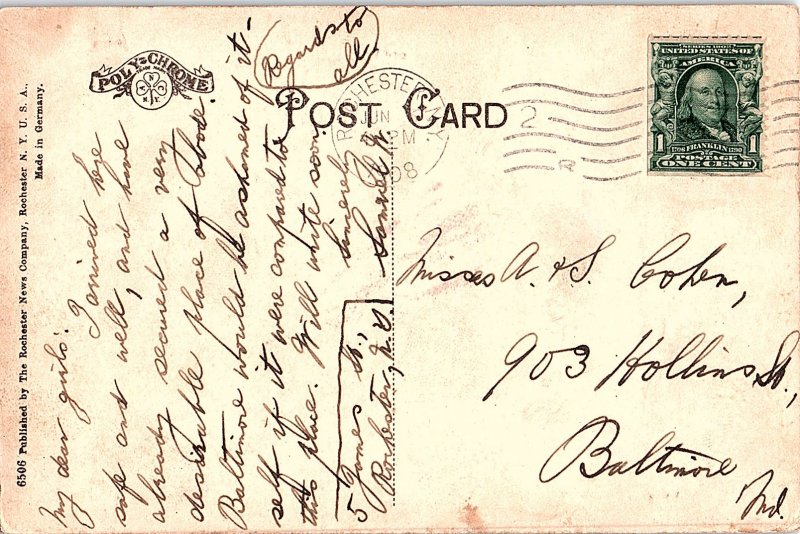 6506 Published by The Rochester News Company, Rochester N. Y. U. S. A.,
Made in Germany.
POLY-CHROME
POST CARD
ROCHESTER, N.Y.
JUN
PM
08
2
SERIES 1902
UNITED STATES OF
AMERICA
1 1
1706 FRANKLIN 1790
POSTAGE
ONE CENT
My dear girls:
I arrived here
safe and well, and have
already secured a very
desirable place of abode.
Baltimore would be ashamed of it-
self if it were compared to
this place. Will write soon.
Sincerely
Samuel N.
5 James St.,
Rochester, N.Y.
Regards to
all.
Misses A. & S. Cohen,
903 Hollins St.,
Baltimore
Md.